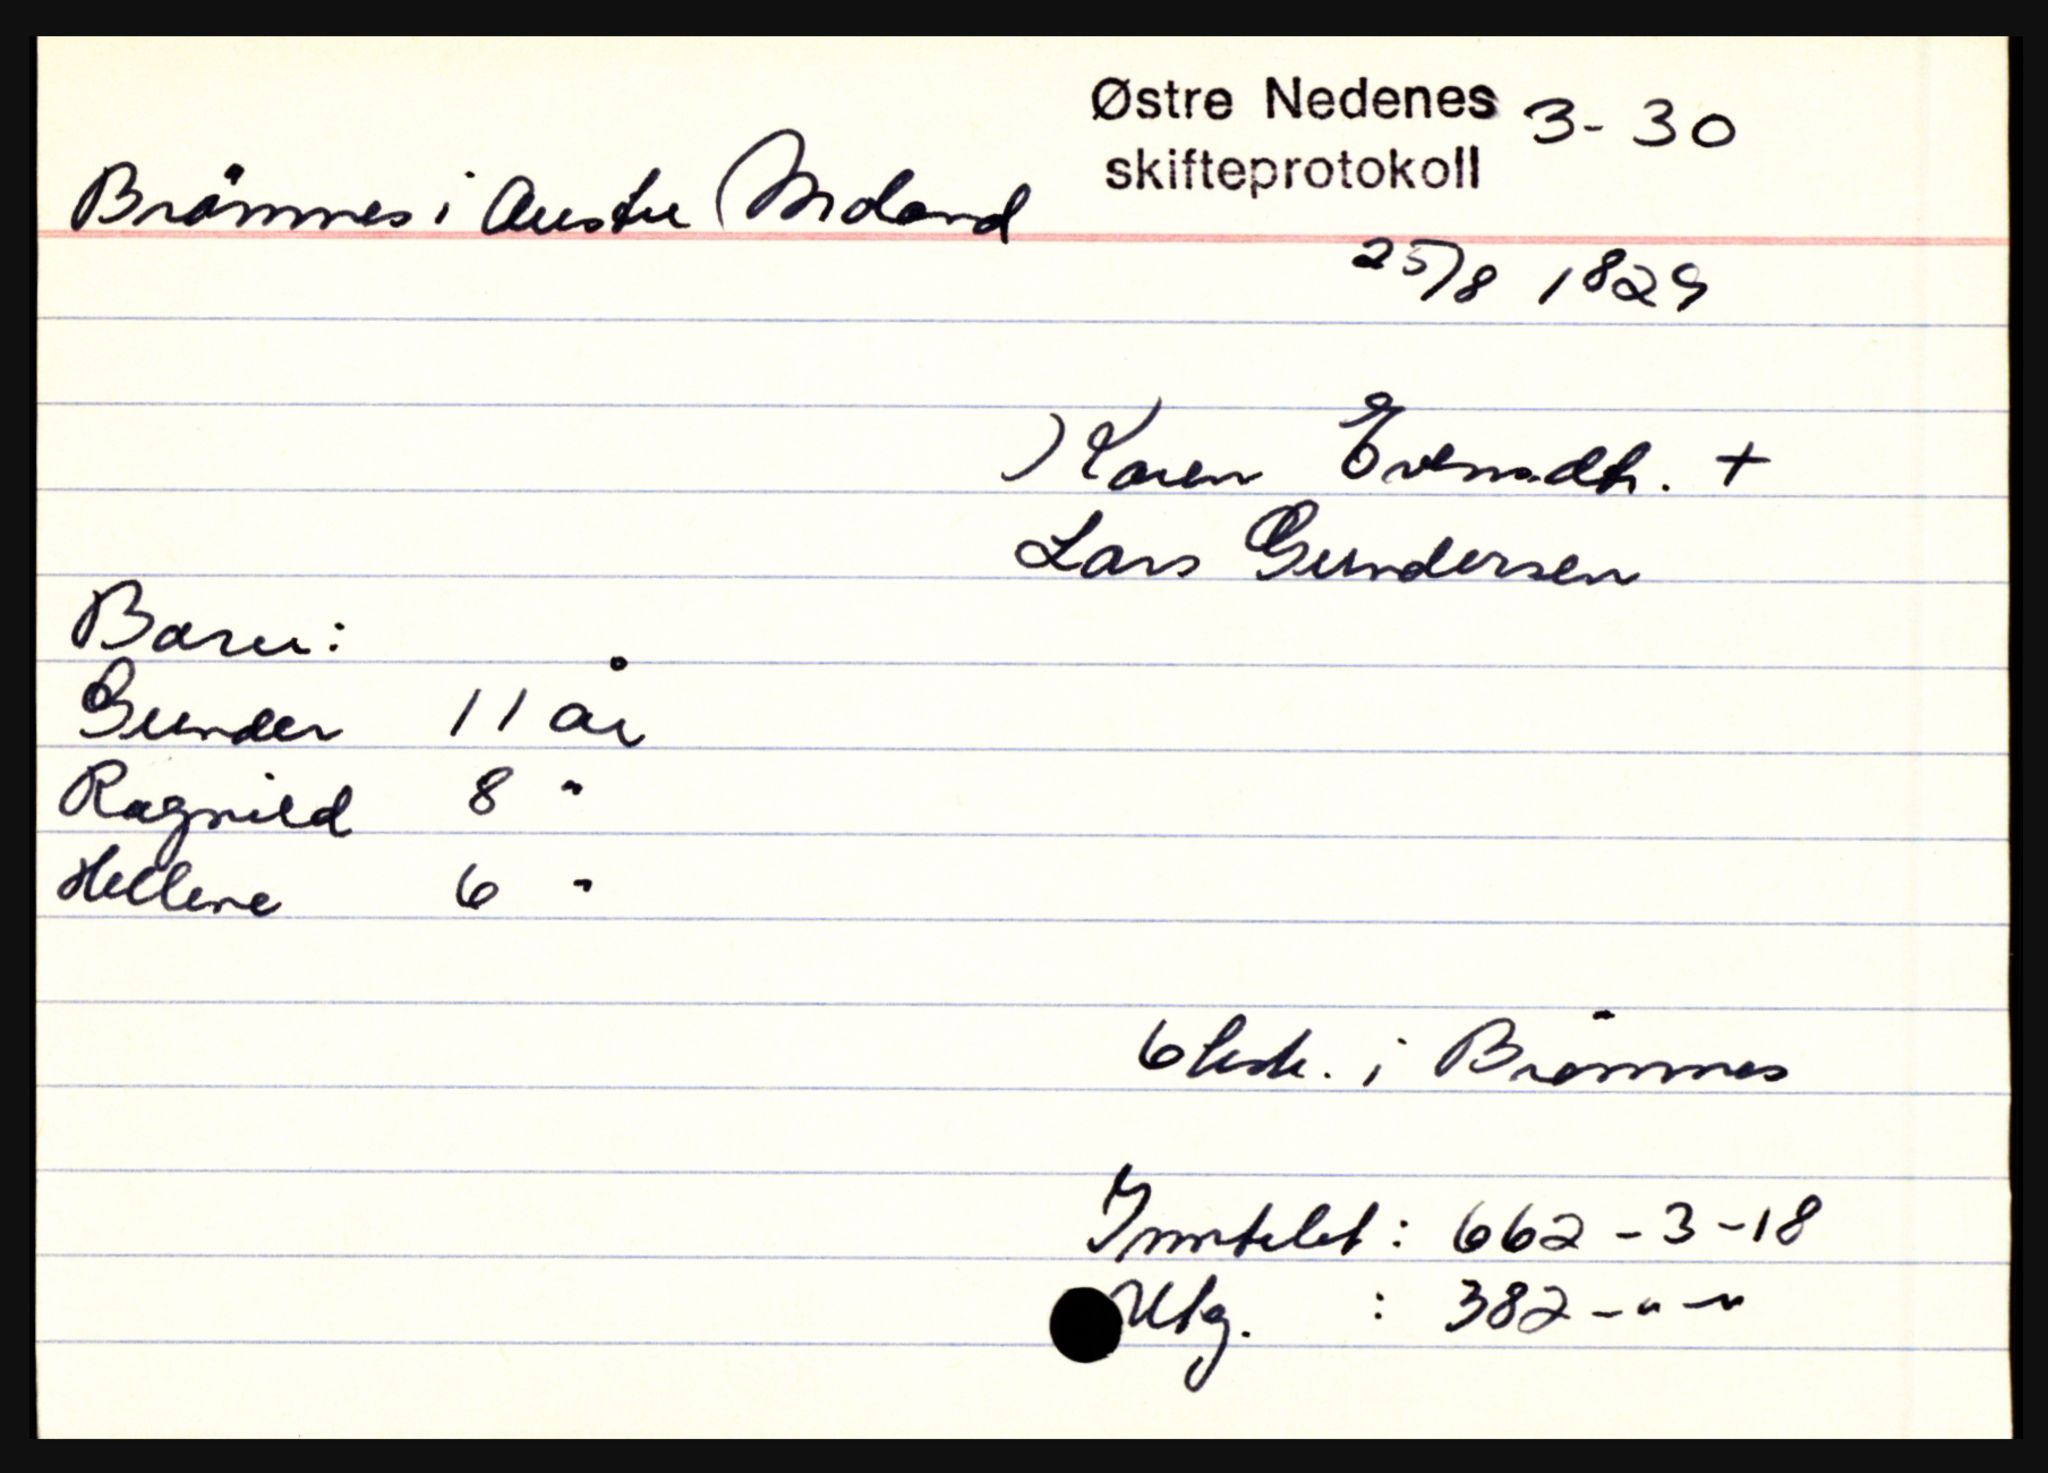 Østre Nedenes 3-30
skifteprotokoll
Brømnes i Austre Moland
25/8 1829
Karen Evensdtr. +
Lars Gundersen
Barn:
Gunder 11 år
Ragnild 8 "
Hellene 6 "
6 i Brømnes
Inntekt: 662-3-18
Utg. : 382-"-"